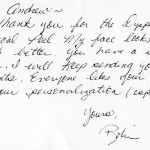 Andrew~
Thank you for the
cal feel My face looks
better. You have a
. I will keep sending yo
Everyone like your
our personalization (esp
Yours,
Robin